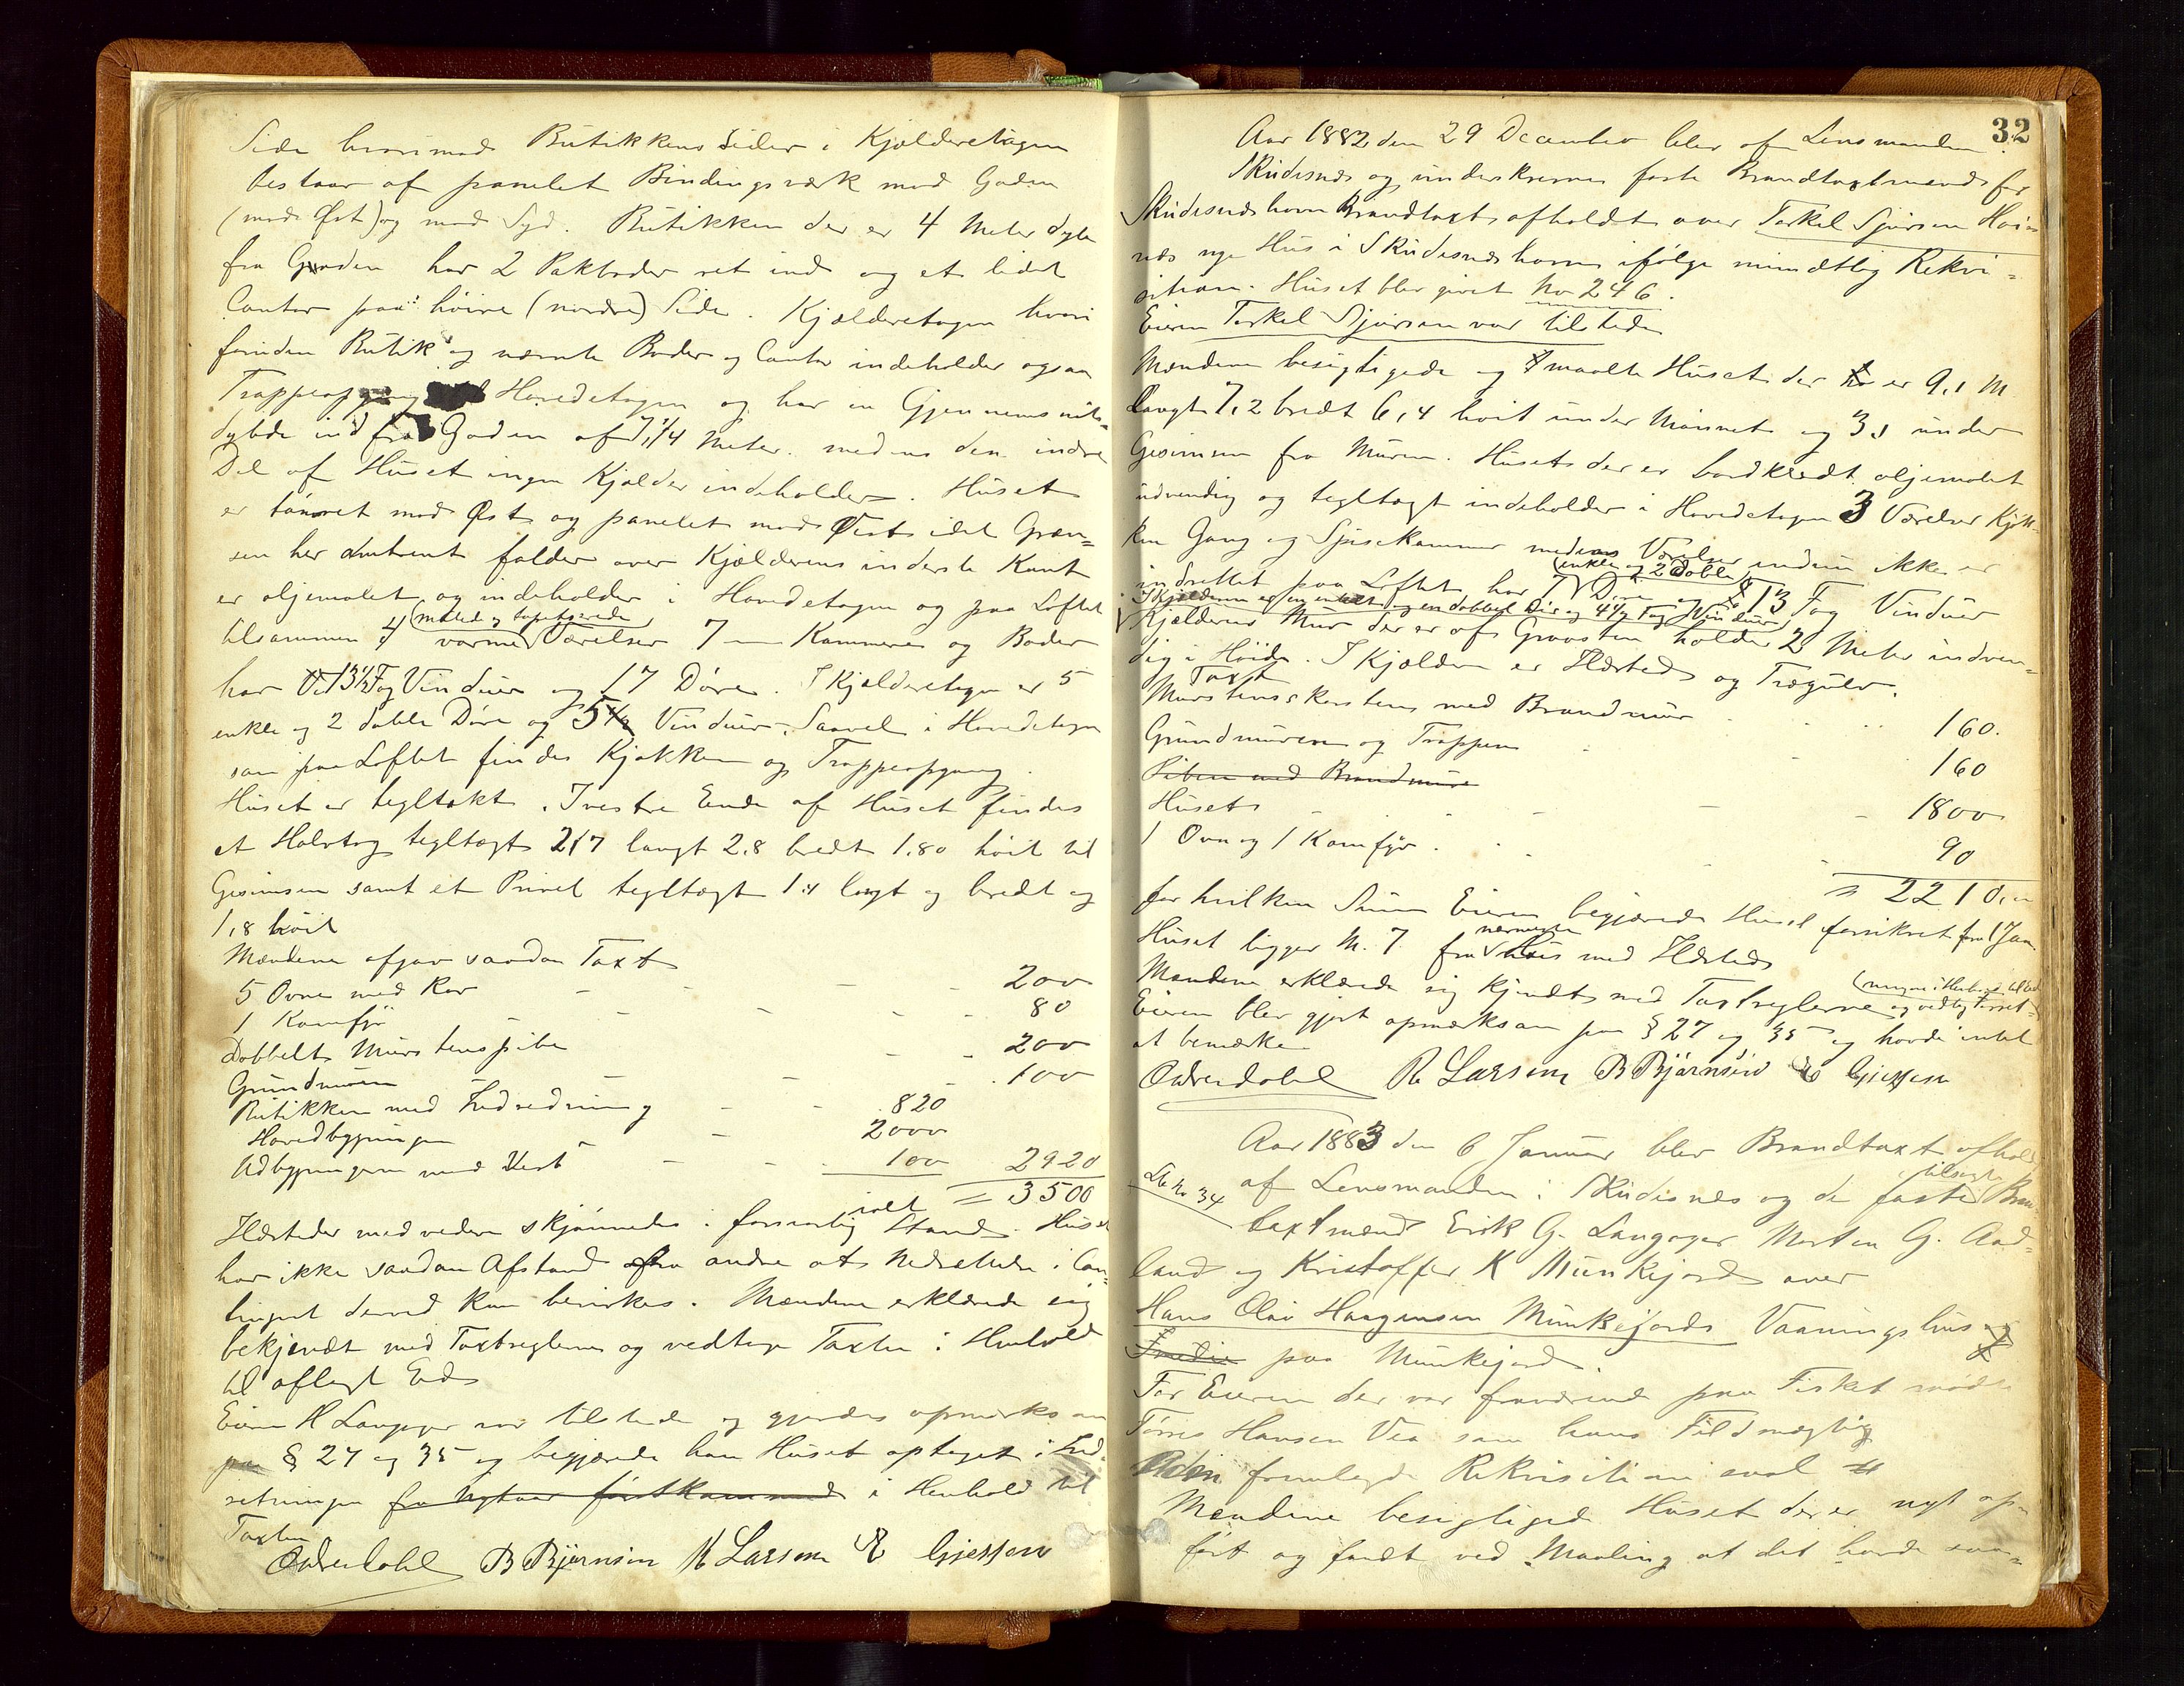 Side hvorimod Butikkens Sider i Kjælderetagen
bestaar af panelet Bindingsværk mod Gaden
(mod Øst) og mod Syd. Butikken der er 4 Meter dyb
fra Gaden har 2 Pakboder ret ind og et lidet
Contor paa høire (nordre) Side. Kjælderetagen hvori
foruden Butik og nævnte Boder og Contor indeholder ogsaa
Trappeopgang Hovedetagen og har en Gjennemsnits-
dybde ind fra Gaden af 7,4 Meter. medens den indre
Del af Huset ingen Kjælder indeholder. Huset
er tømret mod Øst og panelet mod Vest idet Græn-
sen her omtrent falder over Kjælderens inderste Kant
er oljemalet og indeholder i Hovedetagen og paa Loftet
(malede og tapetserede)
tilsammen 4 varme Værelser 7 Kammere og Boder
har 13½ Fag Vinduer og 17 Døre. I Kjælderetagen er 5
enkle og 2 doble Døre og 5½ Vinduer. Saavel i Hovedetagen
som paa Loftet findes Kjøkken og Trappeopgang.
Huset er tegltækt. I vestre Ende af Huset findes
et Halvtag tegltægt 2,7 langt 2,8 bredt 1,80 høit til
Gesimsen samt et Privet tegltægt 1,4 langt og bredt og
1,8 høit
Mændene afgav saadan Taxt
5 Ovne med Rør - - - 200
1 Komfyr - - - 80
Dobbelt Murstenspibe - - 200
Grundmuren - - 100
Butikken med Indredning - - 820
Hovedbygningen - 2000
Udbygningerne mod Vest - - 100 2920
ialt = 3500
Ildsteder med videre skjønnedes i forsvarlig Stand. Huset
har ikke saadan Afstand fra andre at Nedsættelse i Con-
tingent derved kan bevirkes. Mændene erklærede sig
bekjendt med Taxtreglerne og vedtog Taxten i Henhold
til aflagt Ed
Eieren H Langager var tilstede og gjordes opmærksom
paa § 27 og 35 og begjærede han Huset optaget i Ind-
retningen fra Nytaar førstkommende i Henhold til
Taxten
B Bjørnsen R Larsen E Gjessen
32
Aar 1882 den 29 December blev af Lensmanden i
Skudesnæs og underskrevne faste Brandtaxtmænd for
Skudesnæshavn Brandtaxt afholdt over Torkel Sjursen
næs nye Hus i Skudesnæshavn ifølge mundtlig Rekvi-
sition. Huset blev givet No 246.
Eieren Torkel Sjursen var tilstede
Mændene besigtigede og maalte Huset der er 9,1 M
langt 7,2 bredt 6,4 høit under Mønnet og 3, under
Gesimsen fra Muren. Huset der er bordklædt oljemalet
udvendig og tegltægt indeholder i Hovedetagen 3 Værelser Kjøk-
ken Gang og Spisekammer medens Værelser endnu ikke er
(enkle og 2 doble)
indrettet paa Loftet har 7 Døre og 13 Fag Vinduer
I Kjælderen er en enkelt og en dobbel Dør og 4½ Fag Vinduer
Kjælderens Mur der er af Graasten holder 2 Meter indven-
dig i Høide. I Kjælderen er Ildsted og Trægulv.
Taxt
Murstensskorsten med Brandmur 160.
Grundmuren og Trappen 160
Piben med Brandmure
Huset - - - 1800
1 Ovn og 1 Komfyr. 90
2210,00
for hvilken Sum Eieren begjærede Huset forsikret fra 1 Jan.
Huset ligger M. 7 fra nærmeste Hus med Ildsted
Mændene erklærede sig kjendt med Taxtreglerne og vedtog Taxt-
Eieren blev gjort opmærksom paa § 27 og 35 og havde intet
at bemærke
R Larsen B Bjørnsen E Gjessen
Aar 1883 den 6 Januar blev Brandtaxt afhold
Lb No 34
af Lensmanden i Skudesnes og de faste tilsagte Bran
taxtmænd Erik G. Langager Morten G. Aad-
land og Kristoffer K Munkejord over
Hans Olai Haagensen Munkejords Vaaningshus og
paa Munkejord.
For Eieren der var fraværende paa Fisket mødte
Tørres Hansen Vea som hans Fuldmægtig
Uden foreviste Rekvisition
Mændene besigtiget Huset der er nyt op-
ført og fandt ved Maaling at det havde saa-